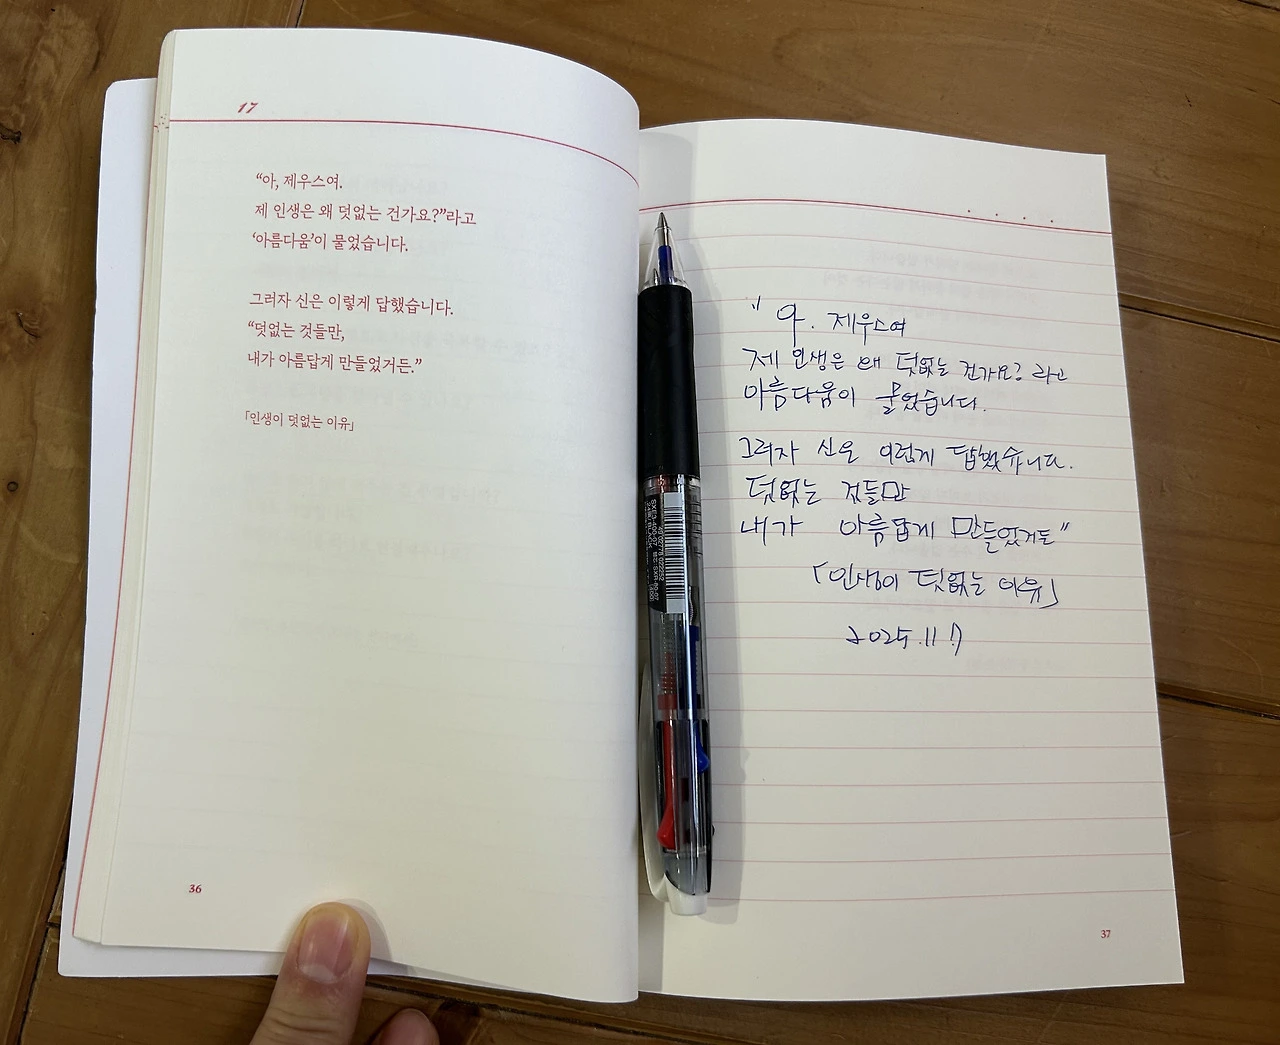 17
“아, 제우스여.
제 인생은 왜 덧없는 건가요?”라고
‘아름다움’이 물었습니다.
그러자 신은 이렇게 답했습니다.
“덧없는 것들만,
내가 아름답게 만들었거든.”
「인생이 덧없는 이유」
36
"아. 제우스여
제 인생은 왜 덧없는 건가요? 라고
아름다움이 물었습니다.
그러자 신은 이렇게 답했습니다.
덧없는 것들만
내가 아름답게 만들었거든"
「인생이 덧없는 이유」
2025.11.7
37
SXE3-400-07